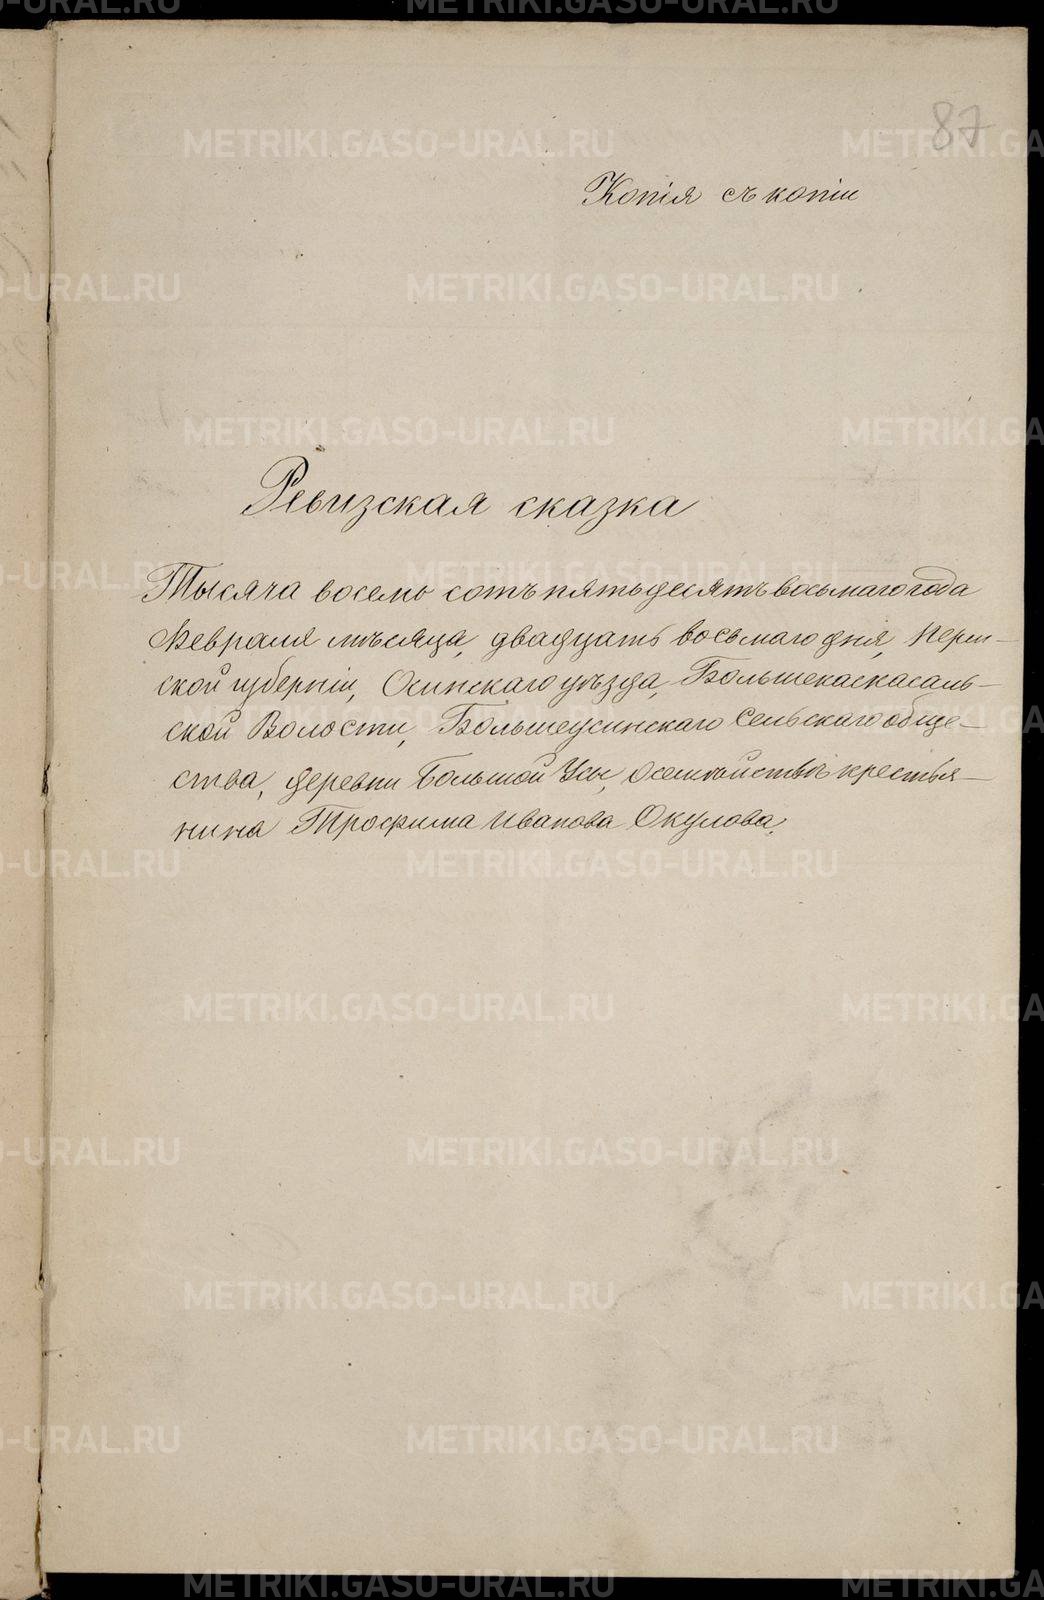 87
Копія съ копіи
Ревизская сказка
Тысяча восемь сотъ пятьдесятъ восьмаго года
Февраля мѣсяца, двадцать восьмаго дня, Перм-
ской губерніи, Осинскаго уѣзда, Большекаскасаль-
ской Волости, Большеусинскаго Сельскаго обще-
ства, деревни Большой Усы, о семѣйствѣ крестья-
нина Трофима Иванова Окулова.
METRIKI.GASO-URAL.RU